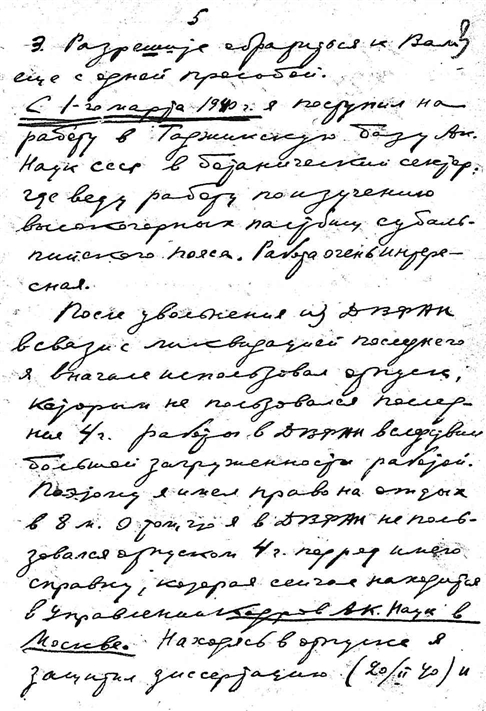 5
3. Разрешите обратиться к Вам
еще с одной просьбой.
С 1-го марта 1940 г. я поступил на
работу в Таджикскую базу Ак.
Наук СССР в ботанический сектор,
где веду работу по изучению
высокогорных пастбищ субаль-
пийского пояса. Работа очень интере-
сная.
После увольнения из ДВФАН
в связи с ликвидацией последнего
я вначале использовал отпуск,
которым не пользовался послед-
ние 4 г. работы в ДВФАН вследствии
большой загруженности работой.
Поэтому я имел право на отдых
в 8 м. О том что я в ДВФАН не поль-
зовался отпуском 4 г.
справку, которая сейчас находится
в Управлении Кадров Ак. Наук в
Москве. Находясь в отпуске я
защитил диссертацию (20/II 40) и